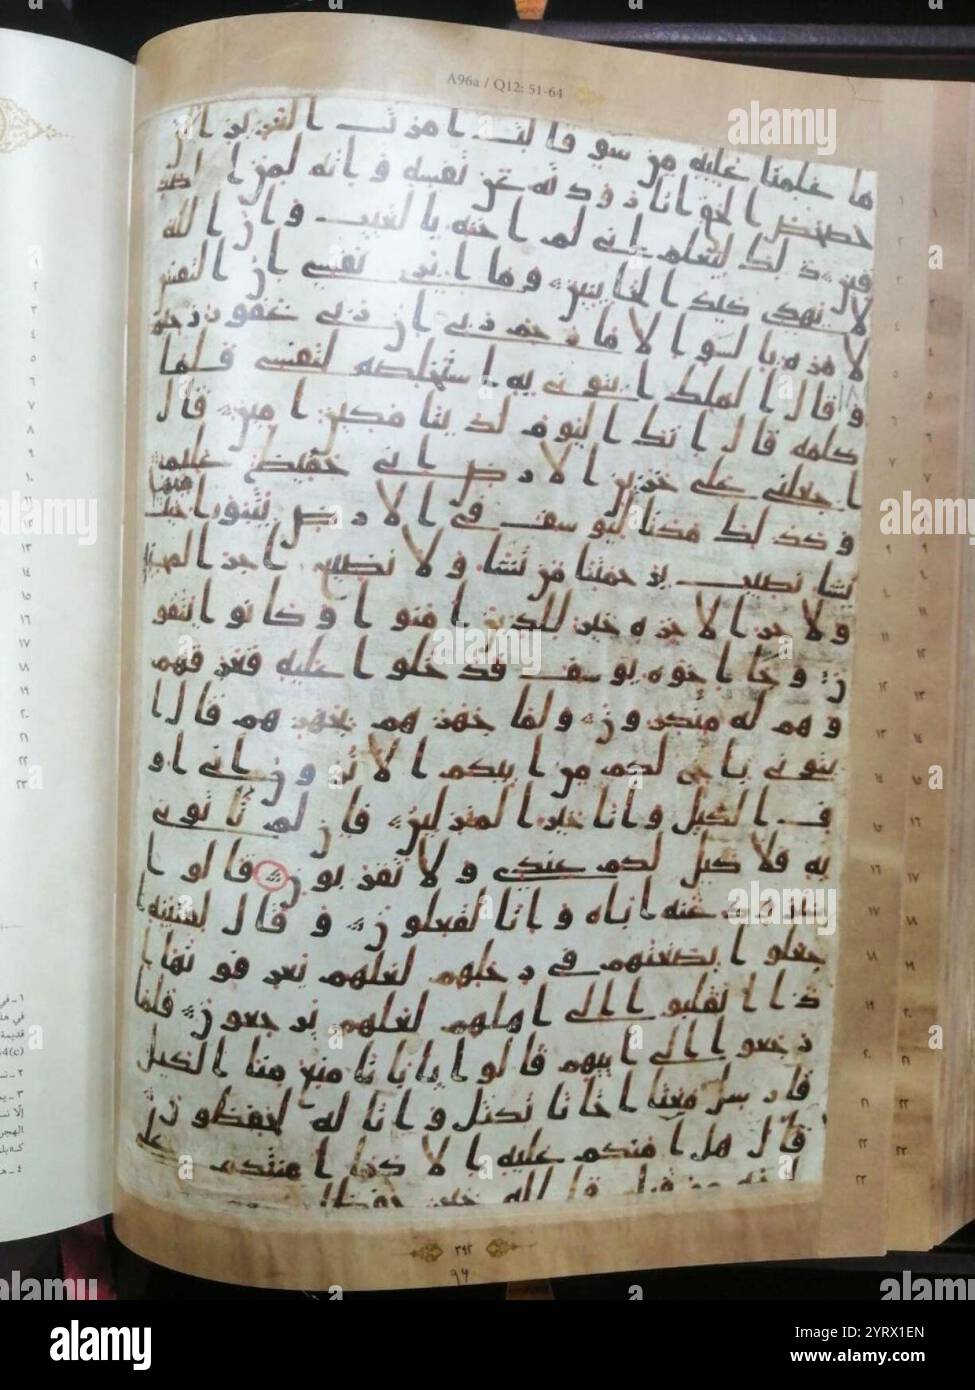 A96a / Q12: 51-64
ما علمنا عليه من سو قالت امرت العزيز الن
حصحص الحق انا رودته عن نفسه وانه لمن الصد
قين ذلك ليعلم اني لم اخنه بالغيب وان الله
لا يهدي كيد الخاينين وما ابري نفسي ان النفس
لامره بالسو الا ما رحم ربي ان ربي غفور رحيم
وقال الملك ايتوني به استخلصه لنفسي فلما
كلمه قال انك اليوم لدينا مكين امين قال
اجعلني على خزين الارض اني حفيظ عليم
وكذلك مكنا ليوسف في الارض يتبوا منها حيث
نشا نصيب برحمتنا من نشا ولا نضيع اجر
ولاجر الاخره خير للذين امنوا وكانوا يتقو
ن وجا اخوه يوسف فدخلوا عليه فعرفهم
وهم له منكرون ولما جهزهم بجهزهم قال ا
يتوني باخ لكم من ابيكم الا ترون اني او
في الكيل وانا خير المنزلين فان لم تاتوني
به فلا كيل لكم عندي ولا تقربون قالوا
سنرود عنه اباه وانا لفعلون وقال لفتينه ا
جعلوا بضعتهم في رحلهم لعلهم يعرفونها ا
ذا انقلبوا الى اهلهم لعلهم يرجعون فلما
رجعوا الى ابيهم قالوا يابانا منع منا الكيل
فارسل معنا اخانا نكتل وانا له لحفظون
قال هل امنكم عليه الا كما امنتكم على
اخيه من قبل فالله خير حفظا
٢٩٢
٩٤
alamy
Image ID: 2YRX1EN
www.alamy.com